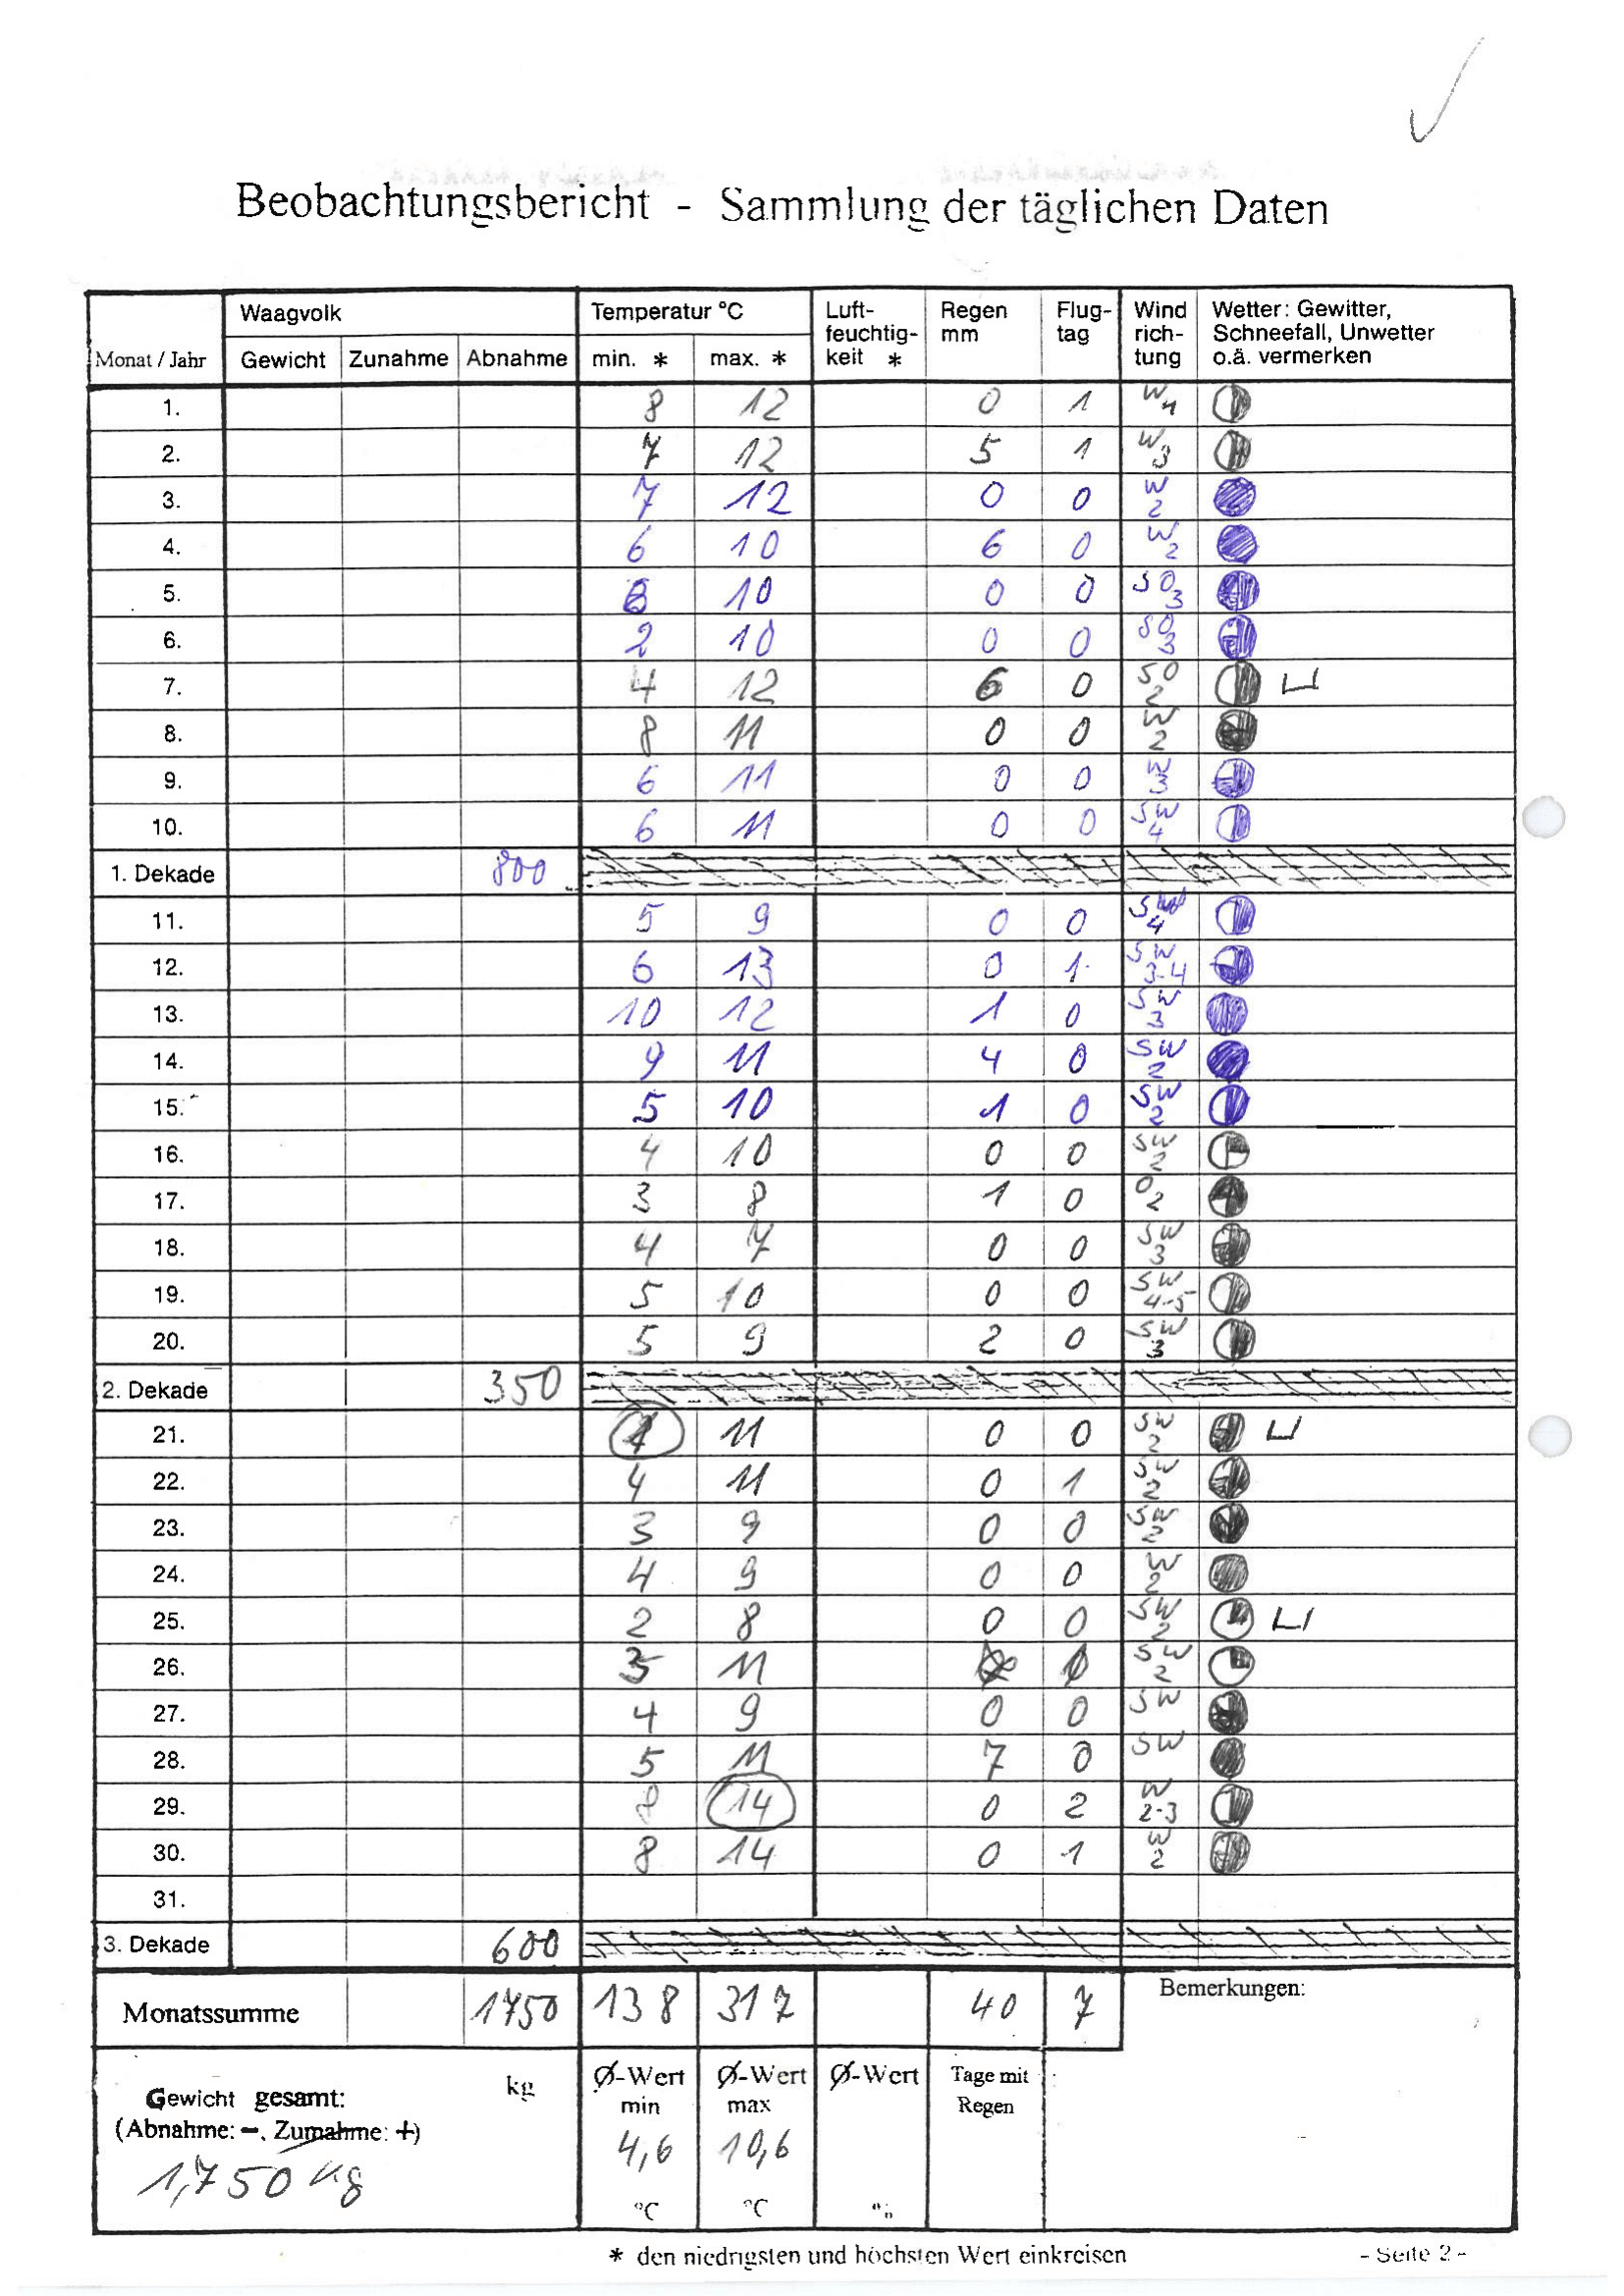 Beobachtungsbericht - Sammlung der täglichen Daten
Monat / Jahr Waagvolk Temperatur °C Luft-feuchtig-keit * Regen mm Flug-tag Wind rich-tung Wetter: Gewitter, Schneefall, Unwetter o.ä. vermerken
Gewicht Zunahme Abnahme min. * max. *
1. 8 12 0 1 W 4
2. 7 12 5 1 W 3
3. 7 12 0 0 W 2
4. 6 10 6 0 W 2
5. 10 0 0 SO 3
6. 2 10 0 0 SO 3
7. 4 12 6 0 SO 2
8. 8 11 0 0 W 2
9. 6 11 0 0 W 3
10. 6 11 0 0 SW 4
1. Dekade 800
11. 5 9 0 0 SW 4
12. 6 13 0 1 SW 3-4
13. 10 12 1 0 SW 3
14. 9 11 4 0 SW 2
15. 5 10 1 0 SW 2
16. 4 10 0 0 SW 2
17. 3 8 1 0 O 2
18. 4 7 0 0 SW 3
19. 5 10 0 0 SW 4-5
20. 5 9 2 0 SW 3
2. Dekade 350
21. 1 11 0 0 SW 2
22. 4 11 0 1 SW 2
23. 3 9 0 0 SW 2
24. 4 9 0 0 W 2
25. 2 8 0 0 SW 2
26. 3 11 SW 2
27. 4 9 0 0 SW
28. 5 11 7 0 SW
29. 8 14 0 2 W 2-3
30. 8 14 0 1 W 2
31.
3. Dekade 600
Monatssumme 1750 138 317 40 7 Bemerkungen:
Gewicht gesamt: kg Ø-Wert min Ø-Wert max Ø-Wert Tage mit Regen
(Abnahme: -, Zunahme: +)
1,750 kg 4,6 10,6
°C °C %
* den niedrigsten und höchsten Wert einkreisen - Seite 2 -